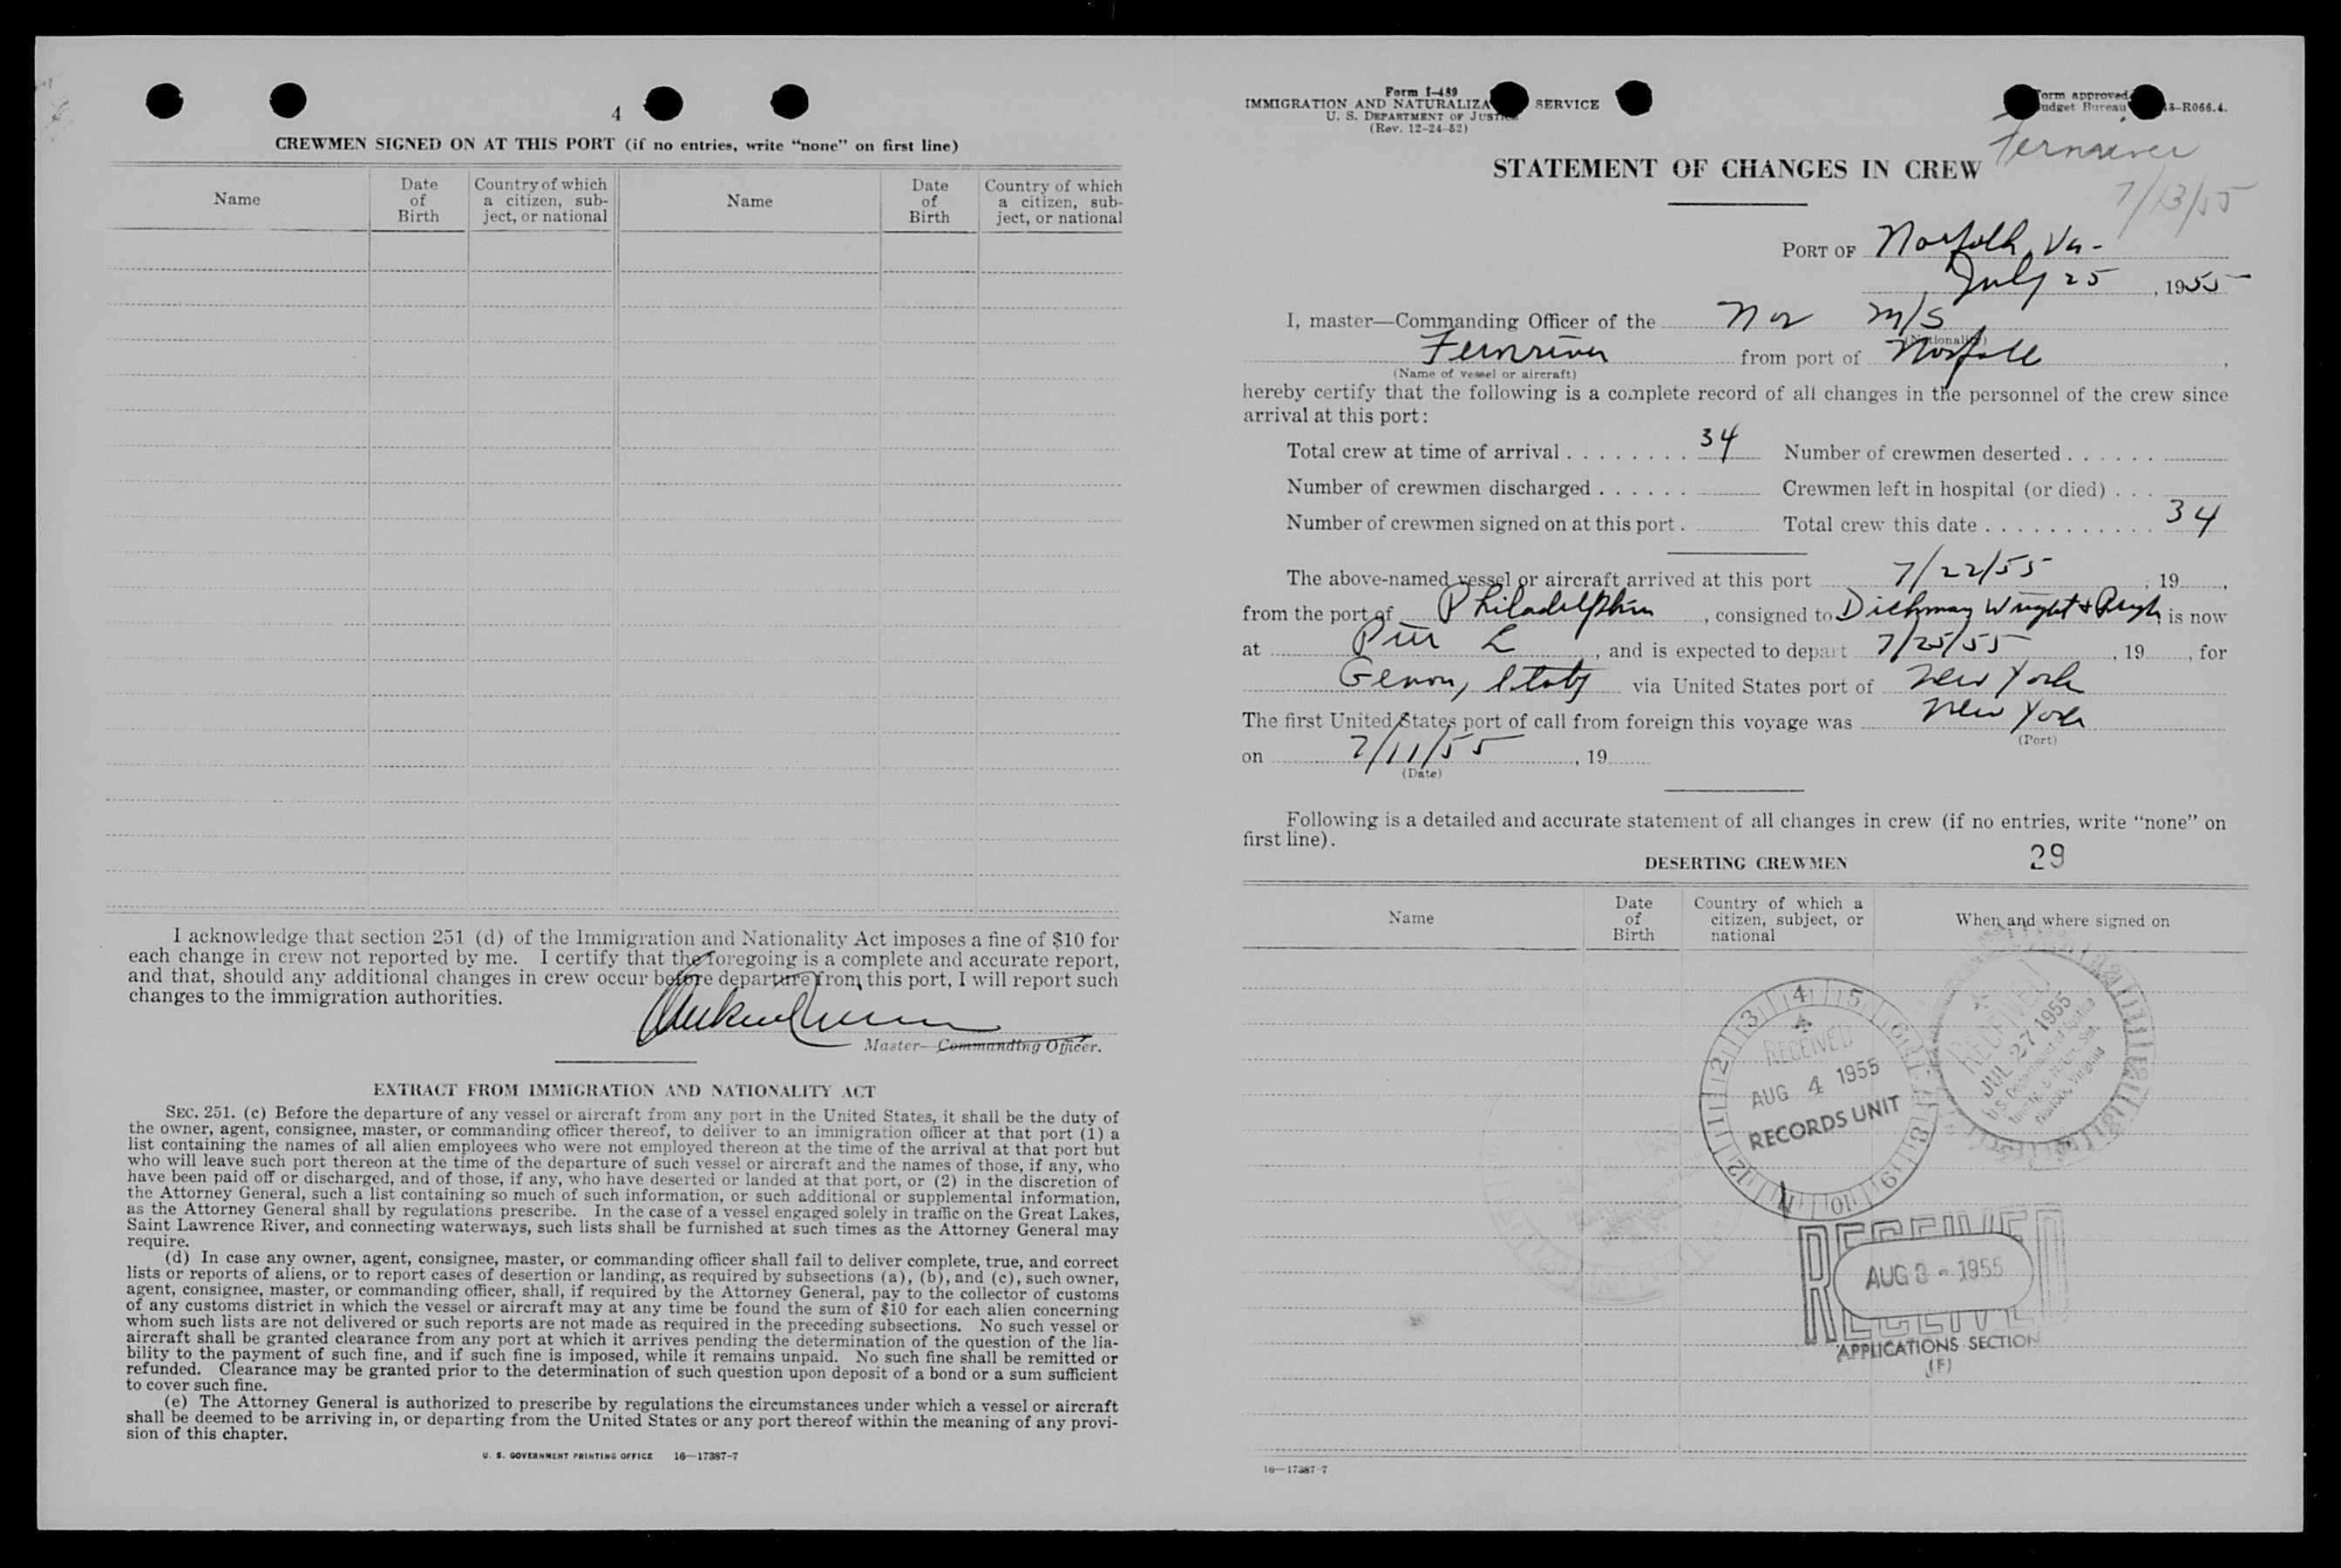 4
CREWMEN SIGNED ON AT THIS PORT (if no entries, write “none” on first line)
Name
Date of Birth
Country of which a citizen, sub-ject, or national
Name
Date of Birth
Country of which a citizen, sub-ject, or national
I acknowledge that section 251 (d) of the Immigration and Nationality Act imposes a fine of $10 for
each change in crew not reported by me. I certify that the foregoing is a complete and accurate report,
and that, should any additional changes in crew occur before departure from this port, I will report such
changes to the immigration authorities.
Master—Commanding Officer.
EXTRACT FROM IMMIGRATION AND NATIONALITY ACT
SEC. 251. (c) Before the departure of any vessel or aircraft from any port in the United States, it shall be the duty of
the owner, agent, consignee, master, or commanding officer thereof, to deliver to an immigration officer at that port (1) a
list containing the names of all alien employees who were not employed thereon at the time of the arrival at that port but
who will leave such port thereon at the time of the departure of such vessel or aircraft and the names of those, if any, who
have been paid off or discharged, and of those, if any, who have deserted or landed at that port, or (2) in the discretion of
the Attorney General, such a list containing so much of such information, or such additional or supplemental information,
as the Attorney General shall by regulations prescribe. In the case of a vessel engaged solely in traffic on the Great Lakes,
Saint Lawrence River, and connecting waterways, such lists shall be furnished at such times as the Attorney General may
require.
(d) In case any owner, agent, consignee, master, or commanding officer shall fail to deliver complete, true, and correct
lists or reports of aliens, or to report cases of desertion or landing, as required by subsections (a), (b), and (c), such owner,
agent, consignee, master, or commanding officer, shall, if required by the Attorney General, pay to the collector of customs
of any customs district in which the vessel or aircraft may at any time be found the sum of $10 for each alien concerning
whom such lists are not delivered or such reports are not made as required in the preceding subsections. No such vessel or
aircraft shall be granted clearance from any port at which it arrives pending the determination of the question of the lia-
bility to the payment of such fine, and if such fine is imposed, while it remains unpaid. No such fine shall be remitted or
refunded. Clearance may be granted prior to the determination of such question upon deposit of a bond or a sum sufficient
to cover such fine.
(e) The Attorney General is authorized to prescribe by regulations the circumstances under which a vessel or aircraft
shall be deemed to be arriving in, or departing from the United States or any port thereof within the meaning of any provi-
sion of this chapter.
U. S. GOVERNMENT PRINTING OFFICE 16—17387-7
Form I-489
IMMIGRATION AND NATURALIZA SERVICE
U. S. DEPARTMENT OF JUSTICE
(Rev. 12-24-52)
orm approved
udget Bureau 43-R066.4.
Fernriver
7/13/55
STATEMENT OF CHANGES IN CREW
PORT OF Norfolk, Va-
July 25, 1955
I, master—Commanding Officer of the Nor m/s
(Nationality)
Fernriver from port of Norfolk,
(Name of vessel or aircraft)
hereby certify that the following is a complete record of all changes in the personnel of the crew since
arrival at this port:
Total crew at time of arrival . . . . . . . . 34 Number of crewmen deserted . . . . . .
Number of crewmen discharged . . . . . . Crewmen left in hospital (or died) . . .
Number of crewmen signed on at this port . Total crew this date . . . . . . . . . . . 34
The above-named vessel or aircraft arrived at this port 7/22/55, 19 ,
from the port of Philadelphia, consigned to Dichmann Wright & Pugh, is now
at Pier L, and is expected to depart 7/25/55, 19 , for
Genoa, Italy via United States port of New York
The first United States port of call from foreign this voyage was New York
(Port)
on 7/11/55, 19
(Date)
Following is a detailed and accurate statement of all changes in crew (if no entries, write “none” on
first line).
DESERTING CREWMEN 29
Name
Date of Birth
Country of which a citizen, subject, or national
When and where signed on
RECEIVED
JUL 27 1955
RECEIVED
AUG 4 1955
RECORDS UNIT
RECEIVED
AUG 3 - 1955
APPLICATIONS SECTION
(F)
16—17387-7